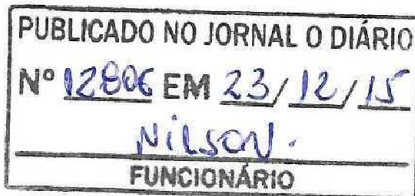 PUBLICADO NO JORNAL O DIÁRIO
Nº 12806 EM 23/12/15
Nilson.
FUNCIONÁRIO